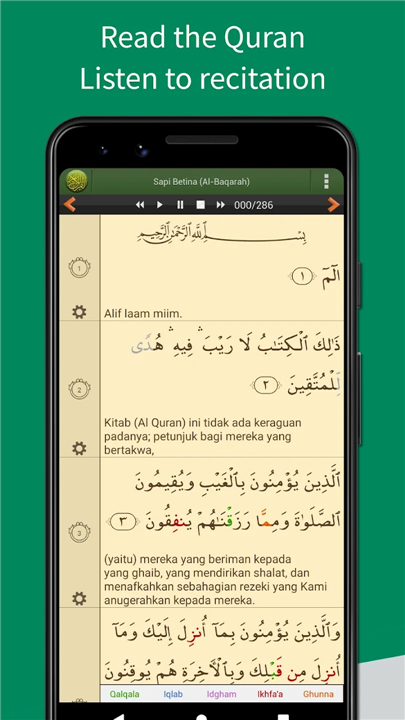 Read the Quran
Listen to recitation
Sapi Betina (Al-Baqarah)
000/286
بِسْمِ اللَّهِ الرَّحْمَٰنِ الرَّحِيمِ
1
الٓمٓ ﴿١﴾
Alif laam miim.
ذَٰلِكَ الْكِتَابُ لَا رَيْبَ ۛ فِيهِ ۛ هُدًى
2
لِّلْمُتَّقِينَ ﴿٢﴾
Kitab (Al Quran) ini tidak ada keraguan
padanya; petunjuk bagi mereka yang
bertakwa,
الَّذِينَ يُؤْمِنُونَ بِالْغَيْبِ وَيُقِيمُونَ
3
الصَّلَوٰةَ وَمِمَّا رَزَقْنَاهُمْ يُنفِقُونَ ﴿٣﴾
(yaitu) mereka yang beriman kepada
yang ghaib, yang mendirikan shalat, dan
menafkahkan sebahagian rezeki yang Kami
anugerahkan kepada mereka.
وَالَّذِينَ يُؤْمِنُونَ بِمَآ أُنزِلَ إِلَيْكَ وَمَآ
أُنزِلَ مِن قَبْلِكَ وَبِالْآخِرَةِ هُمْ يُوقِنُونَ
Qalqala Iqlab Idgham Ikhfa'a Ghunna